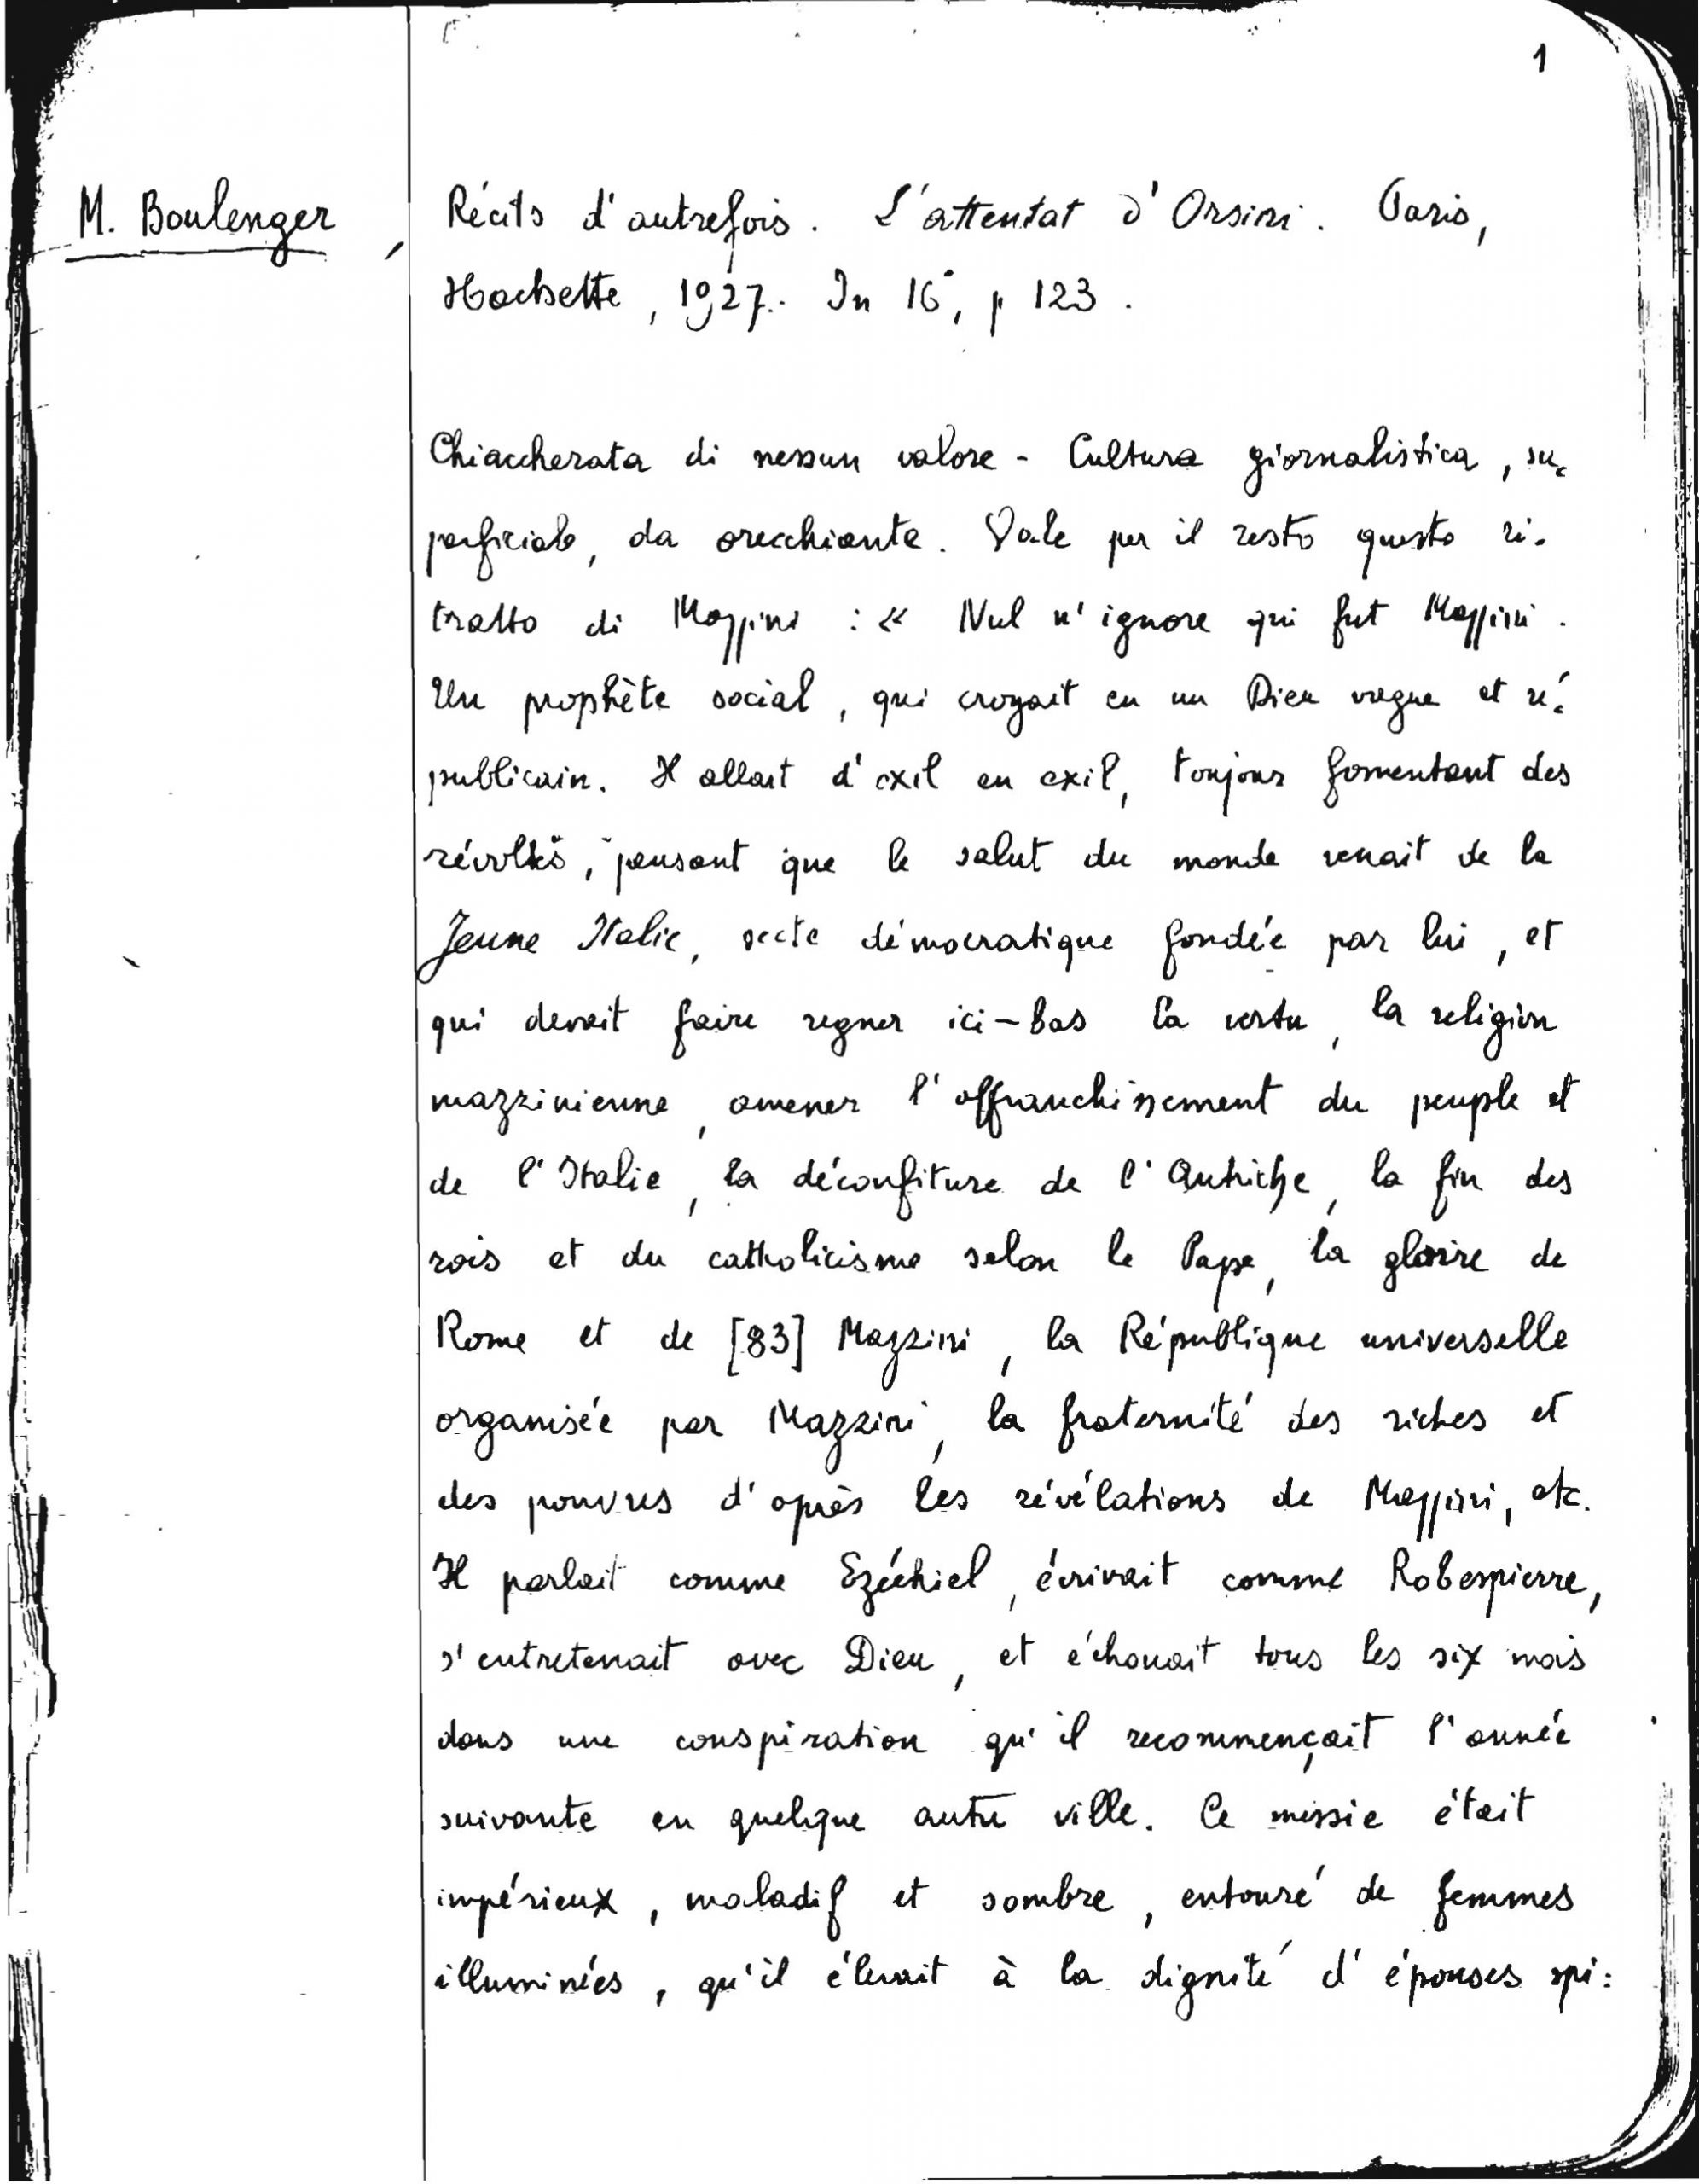 1
M. Boulenger, Récits d'autrefois. L'attentat d'Orsini. Paris,
Hachette, 1927. In 16°, p 123.
Chiaccherata di nessun valore - Cultura giornalistica, su-
perficiale, da orecchiante. Vale per il resto questo ri-
tratto di Mazzini : « Nul n'ignore qui fut Mazzini.
Un prophète social, qui croyait en un Dieu vague et ré-
publicain. Il allait d'exil en exil, toujour fomentant des
révoltes, pensant que le salut du monde venait de la
Jeune Italie, secte démocratique fondée par lui, et
qui devait faire regner ici-bas la vertu, la religion
mazzinienne, amener l'affranchissement du peuple et
de l'Italie, la déconfiture de l'Autriche, la fin des
rois et du catholicisme selon le Pape, la gloire de
Rome et de [83] Mazzini, la République universelle
organisée par Mazzini, la fraternité des riches et
des pauvres d'après les révélations de Mazzini, etc.
Il parlait comme Ezéchiel, écrivait comme Robespierre,
s'entretenait avec Dieu, et échouait tous les six mois
dans une conspiration qu'il recommençait l'année
suivante en quelque autre ville. Ce messie était
impérieux, maladif et sombre, entouré de femmes
illuminées, qu'il élevait à la dignité d'épouses spi: